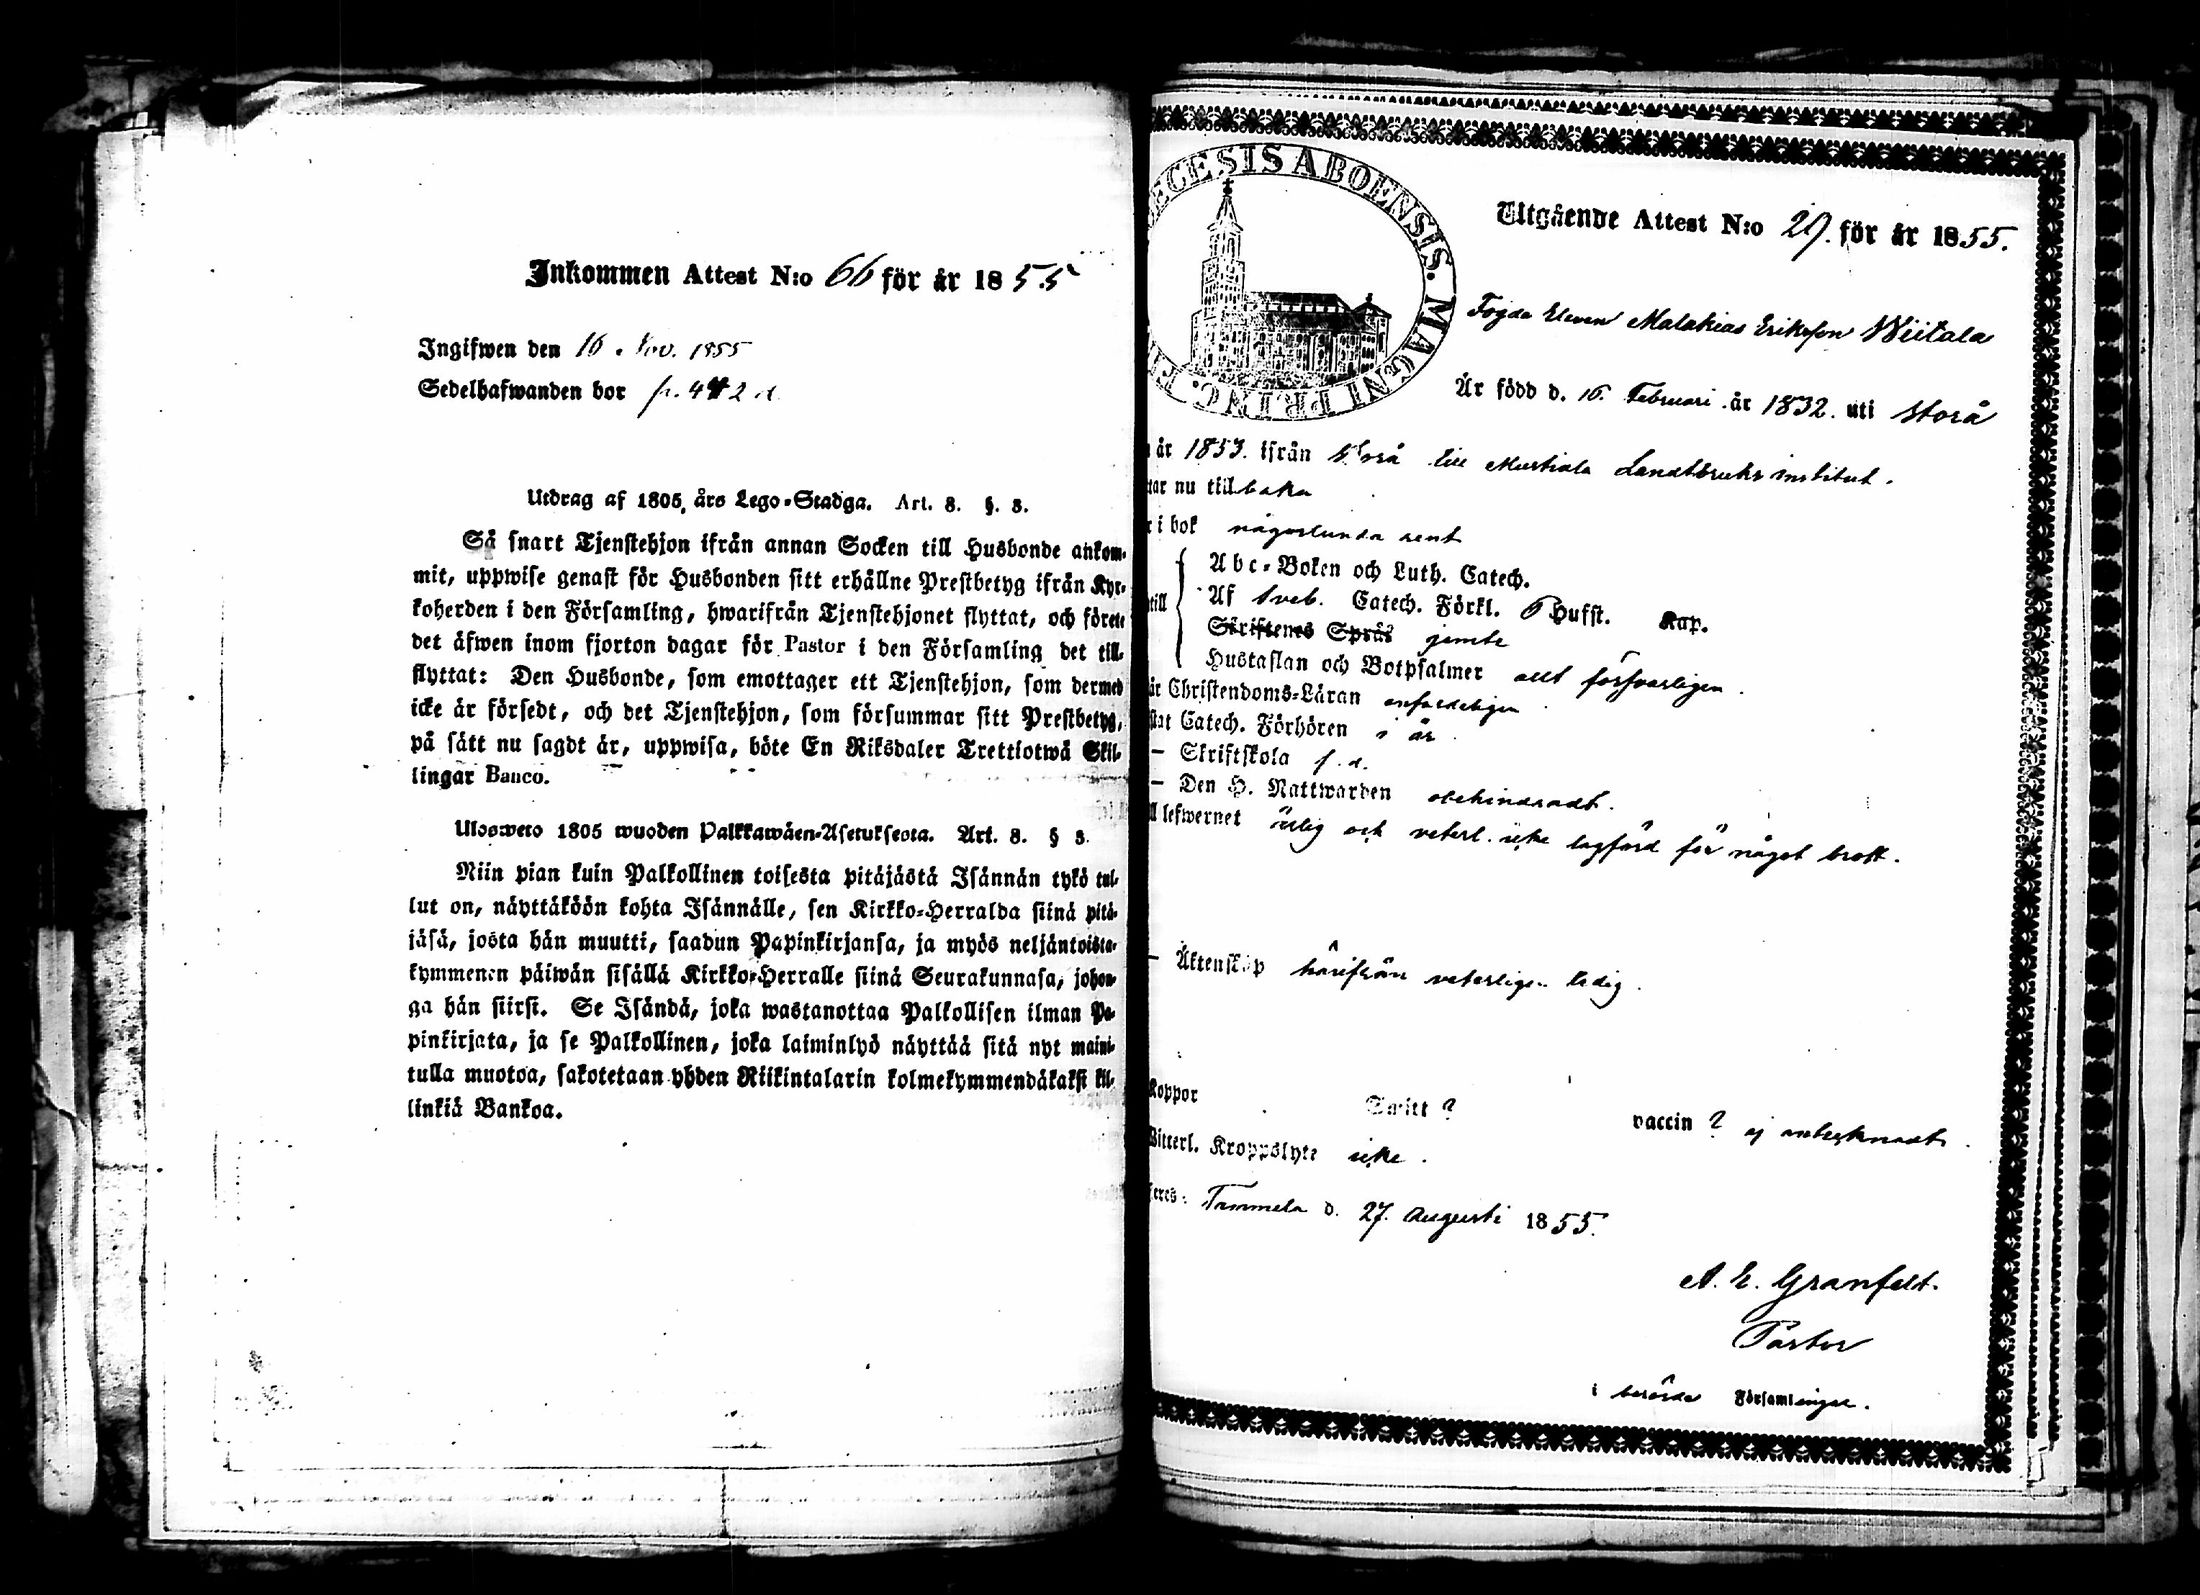 Inkommen Attest N:o 66 för år 1855
Ingifwen den 16 Nov. 1855
Sedelhafwanden bor
Utdrag af 1805, års Lego-Stadga. Art. 8. §. 3.
Så snart Tjenstehjon ifrån annan Socken till Husbonde ankom-
mit, uppwise genast för Husbonden sitt erhållne Prestbetyg ifrån Kyr-
koherden i den Församling, hwarifrån Tjenstehjonet flyttat, och förete
det äfwen inom fjorton dagar för Pastor i den Församling det till-
flyttat: Den Husbonde, som emottager ett Tjenstehjon, som dermed
icke är försedt, och det Tjenstehjon, som försummar sitt Prestbetyg,
på sätt nu sagdt är, uppwisa, böte En Riksdaler Trettiotwå Skil-
lingar Banco.
Ulosweto 1805 wuoden Palkkawäen-Asetuksesta. Art. 8. § 3.
Niin pian kuin Palkollinen toisesta pitäjästä Isännän tykö tul-
lut on, näyttäköön kohta Isännälle, sen Kirkko-Herralda siinä pitä-
jäsä, josta hän muutti, saadun Papinkirjansa, ja myös neljäntoista-
kymmenen päiwän sisällä Kirkko-Herralle siinä Seurakunnasa, johon-
ga hän siirsi. Se Isändä, joka wastanottaa Palkollisen ilman Pa-
pinkirjata, ja se Palkollinen, joka laiminlyö näyttää sitä nyt maini-
tulla muotoa, sakotetaan yhden Riikintalarin kolmekymmendäkaksi kil-
linkiä Bankoa.
ECESIS ABOENSIS. MAGNI PRINC. F
Utgående Attest N:o 29. för år 1855.
Fogde Eleven Malakias Eriksson Wiitala
Är född d. 16. Februari år 1832. uti Storå
år 1853. ifrån Storå till Mustiala Landtbruks institut.
tar nu tillbaka
r i bok någorlunda rent
Abc-Boken och Luth. Catech.
till Af Sveb. Catech. Förkl. 6 Hufst. Kap.
Skriftenes Språk jemte
Hustaflan och Botpsalmer allt försvarligen.
är Christendoms-Läran
stat Catech. Förhören i år.
— Skriftskola s. d.
— Den H. Nattwarden obehindradt.
ll lefwernet ärlig och veterl. icke lagförd för något brott.
— Äktenskap härifrån veterligen ledig.
Koppor
Smitt ? vaccin ? ej antecknadt.
Witterl. Kroppslyte icke.
feres: Tammela d. 27. Augusti 1855.
A. E. Granfelt.
Pastor
i berörde Församlingar.